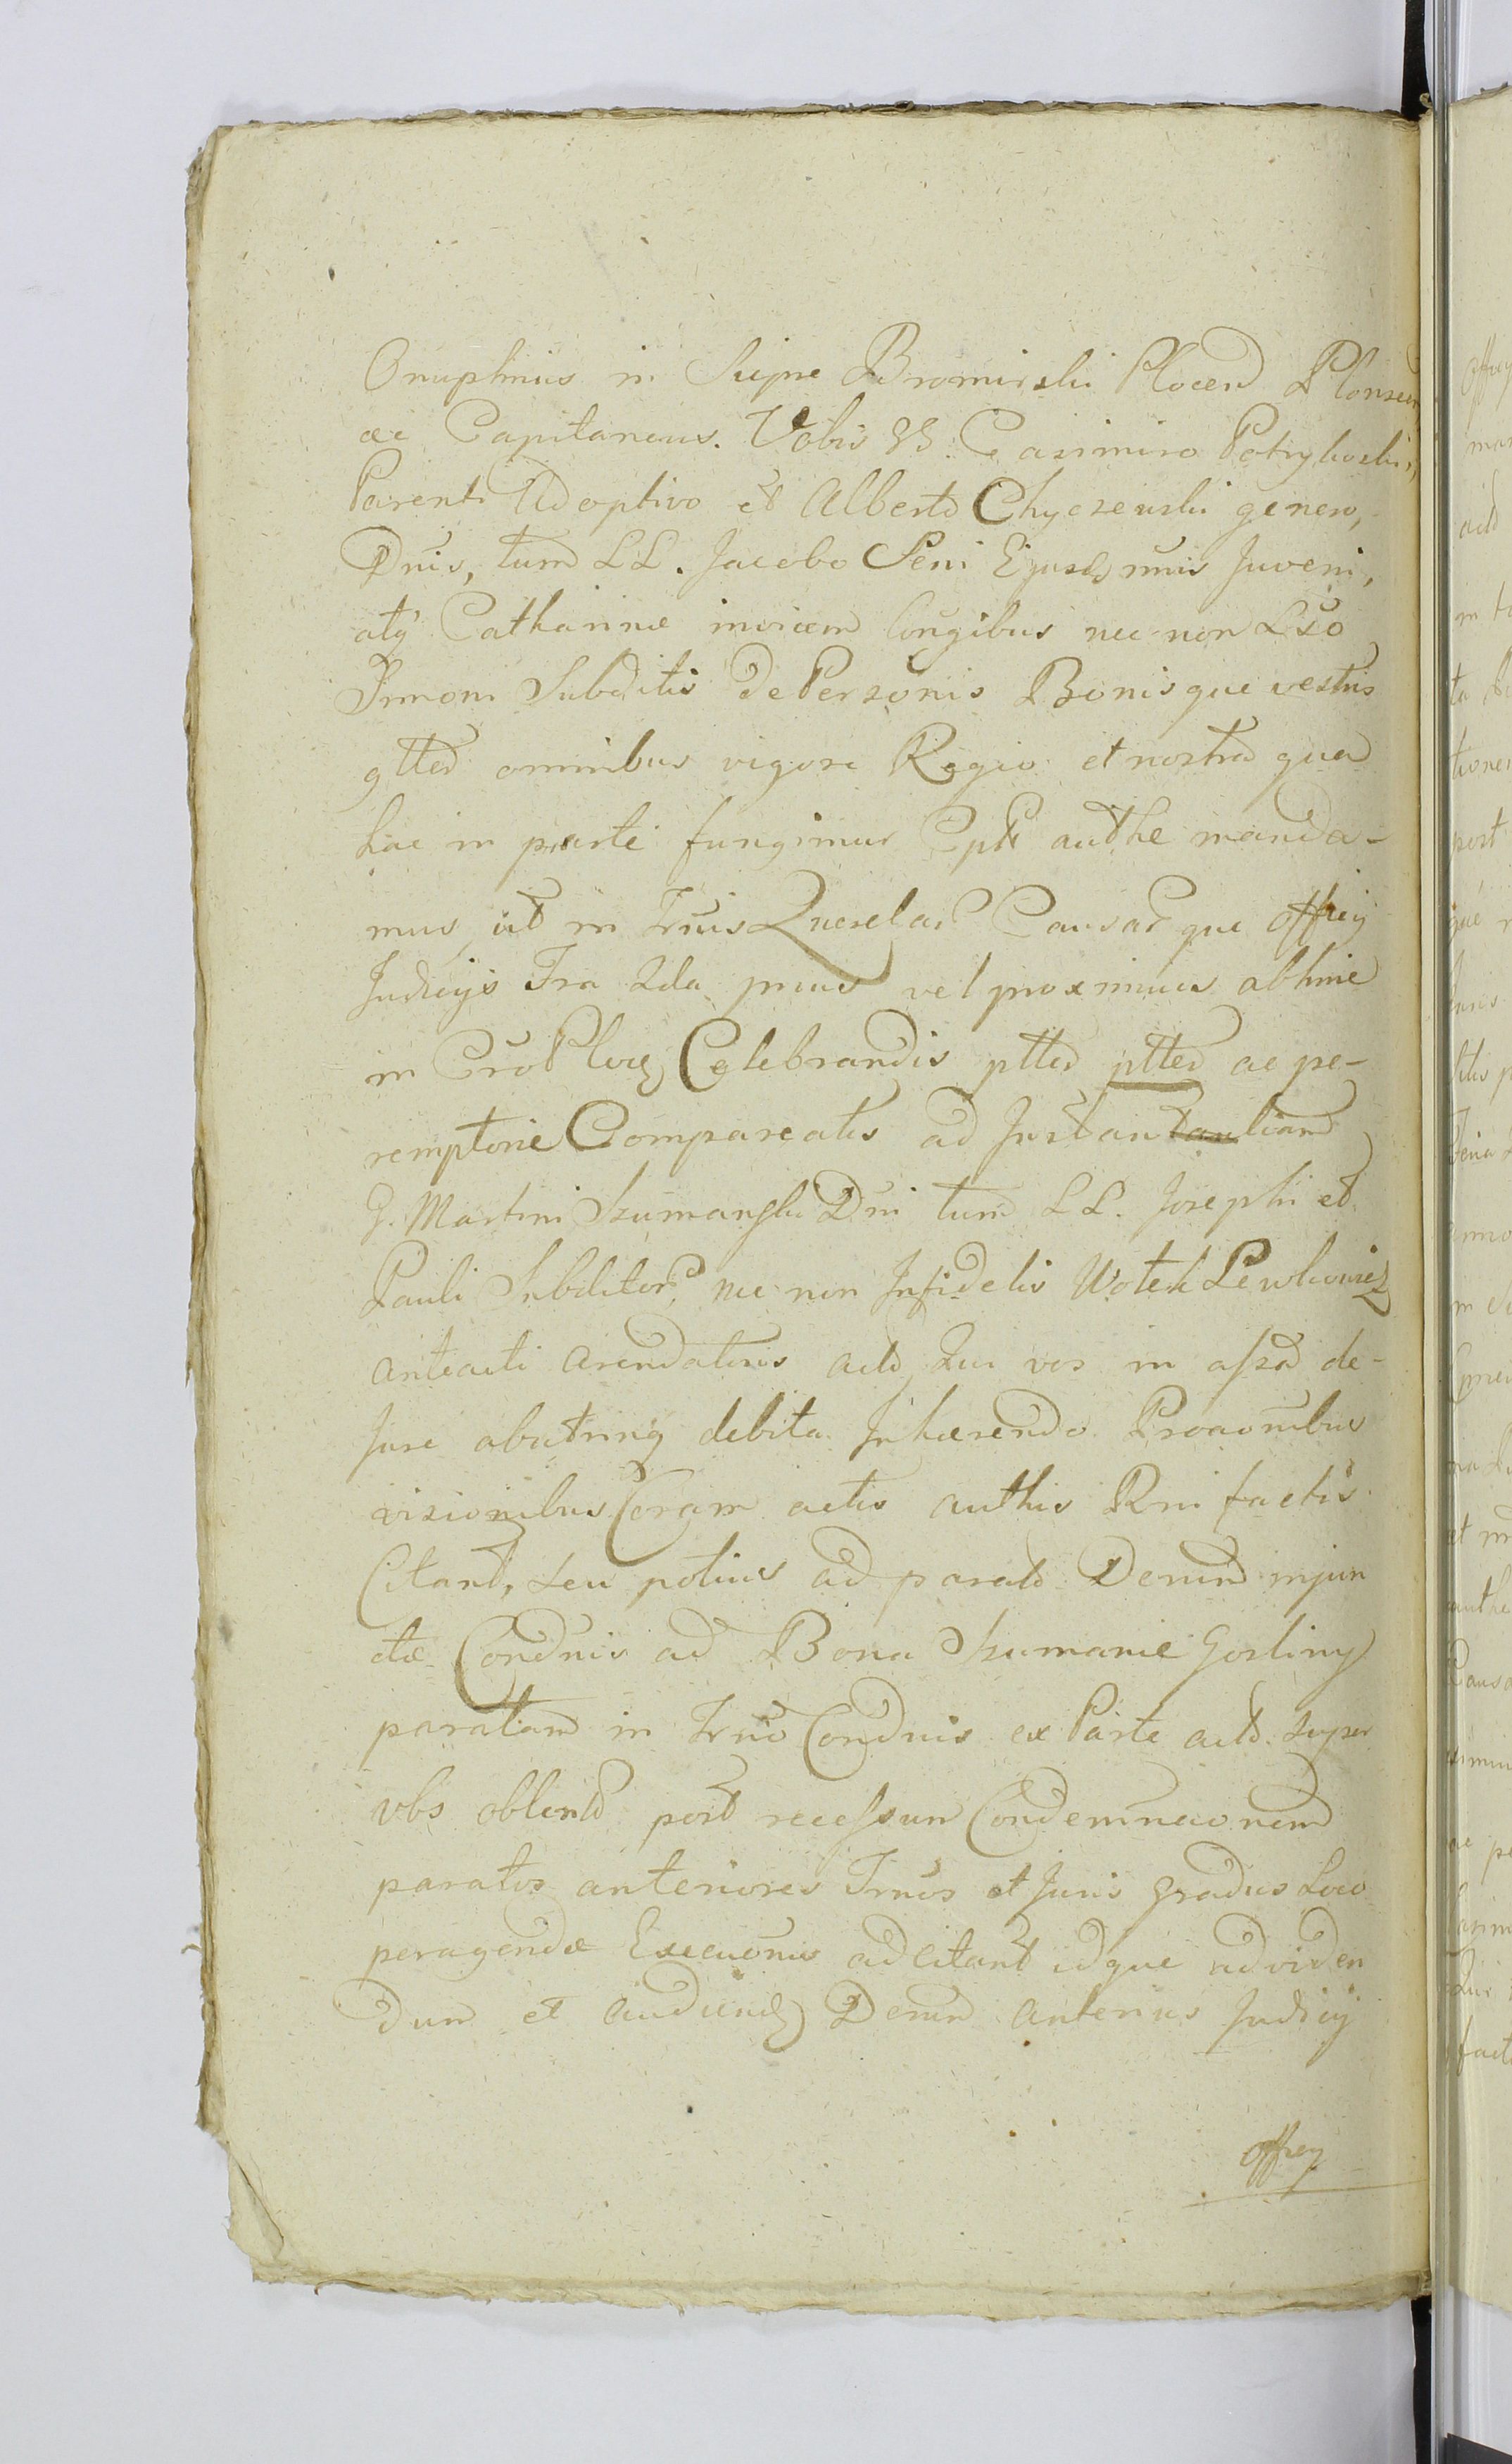 Onuphrius in Siepne Bromirski Plocen Plonscen
ac Capitaneus. Vobis GG. Casimiro Potrykoski,
Parenti Adoptivo et Alberto Chyczewski genero,
Dnis, tum LL. Jacobo Seni Ejusd nnis Juveni,
atq Catharinæ invicem Conqibus nec non Lso
Simoni Subditis de Personis Bonisque vestris
gtted omnibus vigore Regio et nostra qua
hac in parte fungimur Cptli authe manda-
mus, ut in Trnis Querelar Causar que Offrey
Judicijs Fra 2da pnius vel proximius abhinc
in Cro Ploc Celebrandis ptted ptted ac pe-
remptorie Compareatis ad Instantantiam
G. Martini Szumanski Dni tum LL. Josephi et
Pauli Subditor, nec non Infidelis Wotek Lewkowicz
anteacti arendatoris actb Qui vos in assa de-
Jure abutrinq debita Inhærendo Proaonibus
visionibus Coram actis authis Rni factis
Citant, seu potius ad parato Denum injun
ctæ Condnis ad Bona Szumanie Gosliny
paratam in Trno Condnis ex Parte actb super
vbs obtento post recessum Condemnaonem
paratos anteriores Trnos et Juris gradus Loco
peragendæ Execuonis adcitant idque ad viden
dum et audiend Denum anterius Judicij
Offrey